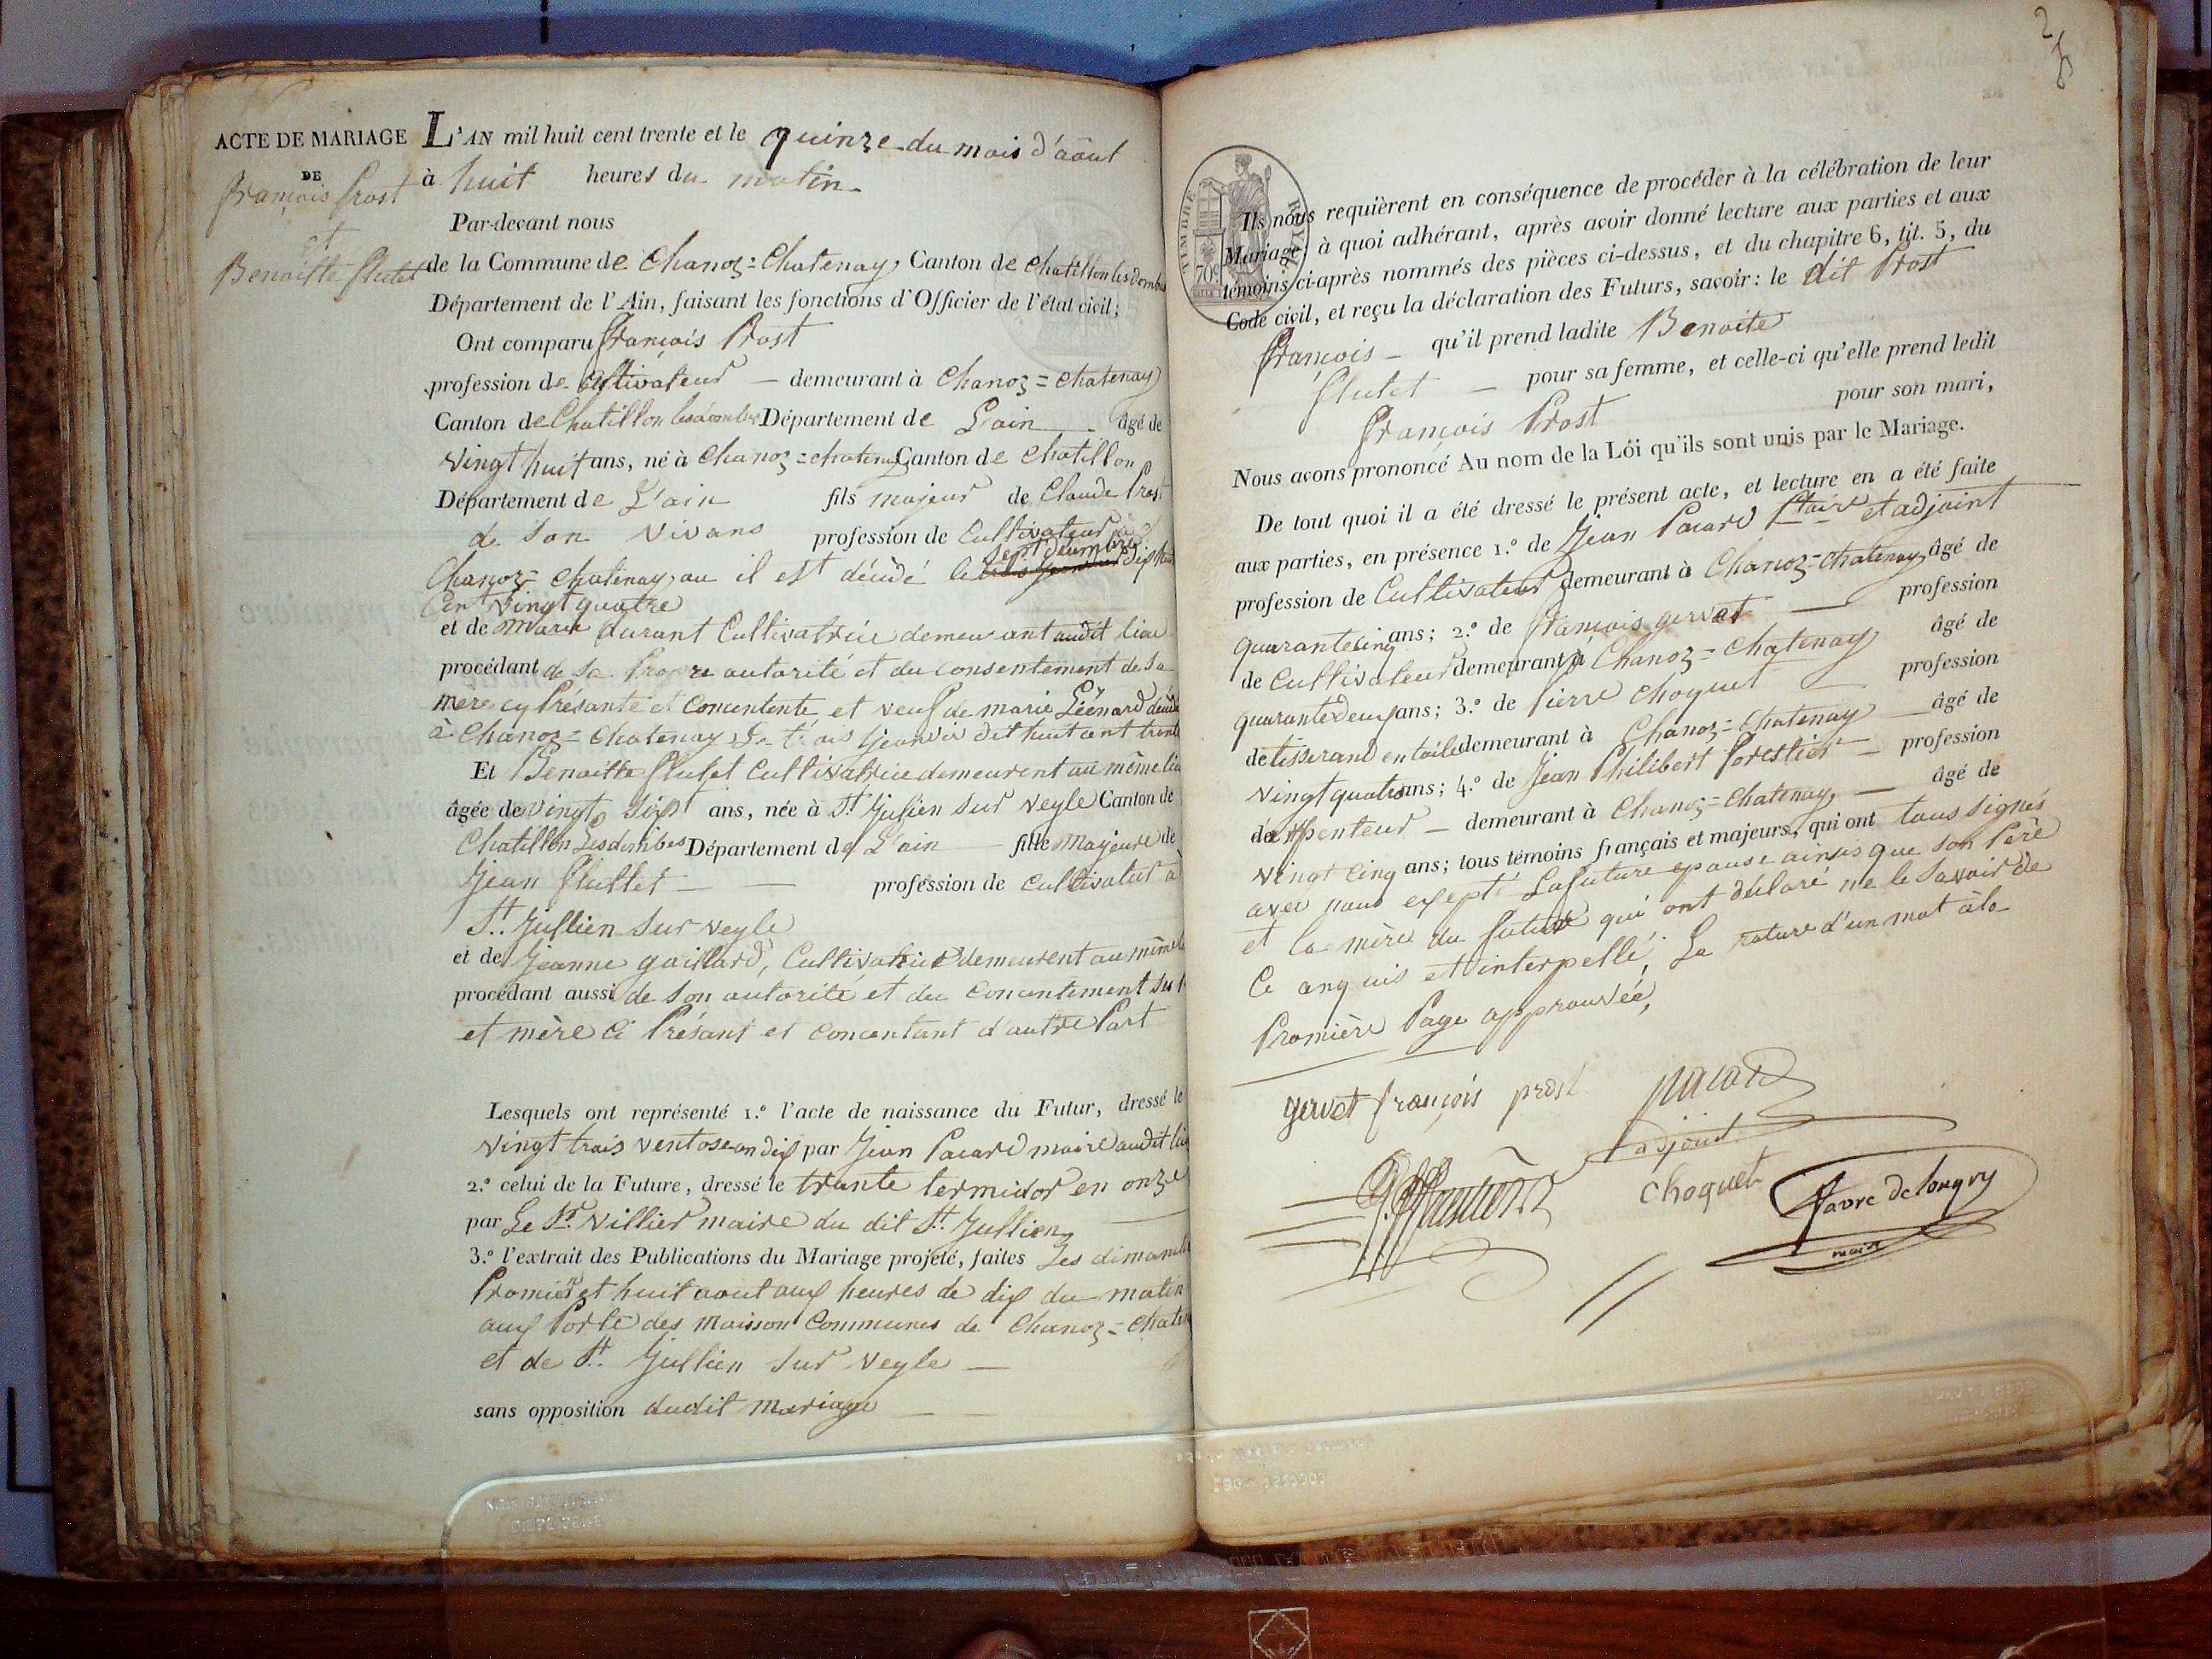 ACTE DE MARIAGE
DE
François Prost
et
Benoitte flutet
L'AN mil huit cent trente et le quinze du mois d'août
à huit heures du matin
Par-devant nous
de la Commune de Chanoz=Chatenay, Canton de Chatillon les Dombes
Département de l'Ain, faisant les fonctions d'Officier de l'état civil;
Ont comparu François Prost
profession de Cultivateur — demeurant à Chanoz=Chatenay
Canton de Chatillon Département de L'ain âgé de
vingt huit ans, né à Chanoz=chatenay Canton de Chatillon
Département de L'ain fils majeur de Claude Prost
de son vivans profession de Cultivateur à
Chanoz=Chatenay, ou il est décédé le sept décembre dix huit
Cent vingt quatre
et de marie durant Cultivatrice demeurant audit lieu
procédant de sa Propre autorité et du consentement de sa
mère cy Présante et Concentente et veuf de marie Léonard
à Chanoz=Chatenay Le trois Janvier dit huit cent trente
Et Benoitte flutet Cultivatrice demeurent au même lieu
âgée de vingt six ans, née à St. Jullien sur veyle Canton de
Chatillon Les dombes Département de L'ain — fille majeure de
Jean fluttet — — profession de Cultivateur à
St. Jullien sur veyle
et de Jeanne gaillard, Cultivatrice demeurent au même
procédant aussi de son autorité et du concentement
et mère ci Présant et concentant d'autre Part
Lesquels ont représenté 1.º l'acte de naissance du Futur, dressé le
vingt trois ventose an dix par Jean Pacard maire audit lieu
2.º celui de la Future, dressé le trante termidor en onze
par Le Sr. Villier maire du dit St. Jullien
3.º l'extrait des Publications du Mariage projeté, faites Les
Promier et huit aout aux heures de dix du matin
aux Porte des maison Communes de Chanoz=
et de St. Jullien sur veyle —
sans opposition dudit mariage
TIMBRE ROYAL
70c
Ils nous requièrent en conséquence de procéder à la célébration de leur
Mariage; à quoi adhérant, après avoir donné lecture aux parties et aux
témoins ci-après nommés des pièces ci-dessus, et du chapitre 6, tit. 5, du
Code civil, et reçu la déclaration des Futurs, savoir: le dit Prost
François — qu'il prend ladite Benoite
flutet — pour sa femme, et celle-ci qu'elle prend ledit
François Prost pour son mari,
Nous avons prononcé Au nom de la Loi qu'ils sont unis par le Mariage.
De tout quoi il a été dressé le présent acte, et lecture en a été faite
aux parties, en présence 1.º de Jean Pacard et adjoint
profession de Cultivateur demeurant à Chanoz=chatenay âgé de
quarante cinq ans; 2.º de François gervet — profession
de Cultivateur demeurant à Chanoz=Chatenay âgé de
quarante deux ans; 3.º de Pierre Choquet profession
de tisserand en toile demeurant à Chanoz=Chatenay âgé de
vingt quatre ans; 4.º de Jean Philibert Forestier — profession
demeurant à Chanoz=Chatenay, — âgé de
vingt cinq ans; tous témoins français et majeurs, qui ont tous signés
avec nous Lafuture epouse que son Père
et la mère du futur qui ont déclaré ne le savoir de
Ce anquis et interpellé. La rature d'un mot à la
Promière Page approuvée,
gervet françois prost pacard
adjoint
choquet
favre Delongry
maire